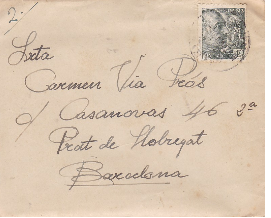 2.
Srta
Carmen Via Prós
c/ Casanovas 46 2ª
Prat de Llobregat
Barcelona